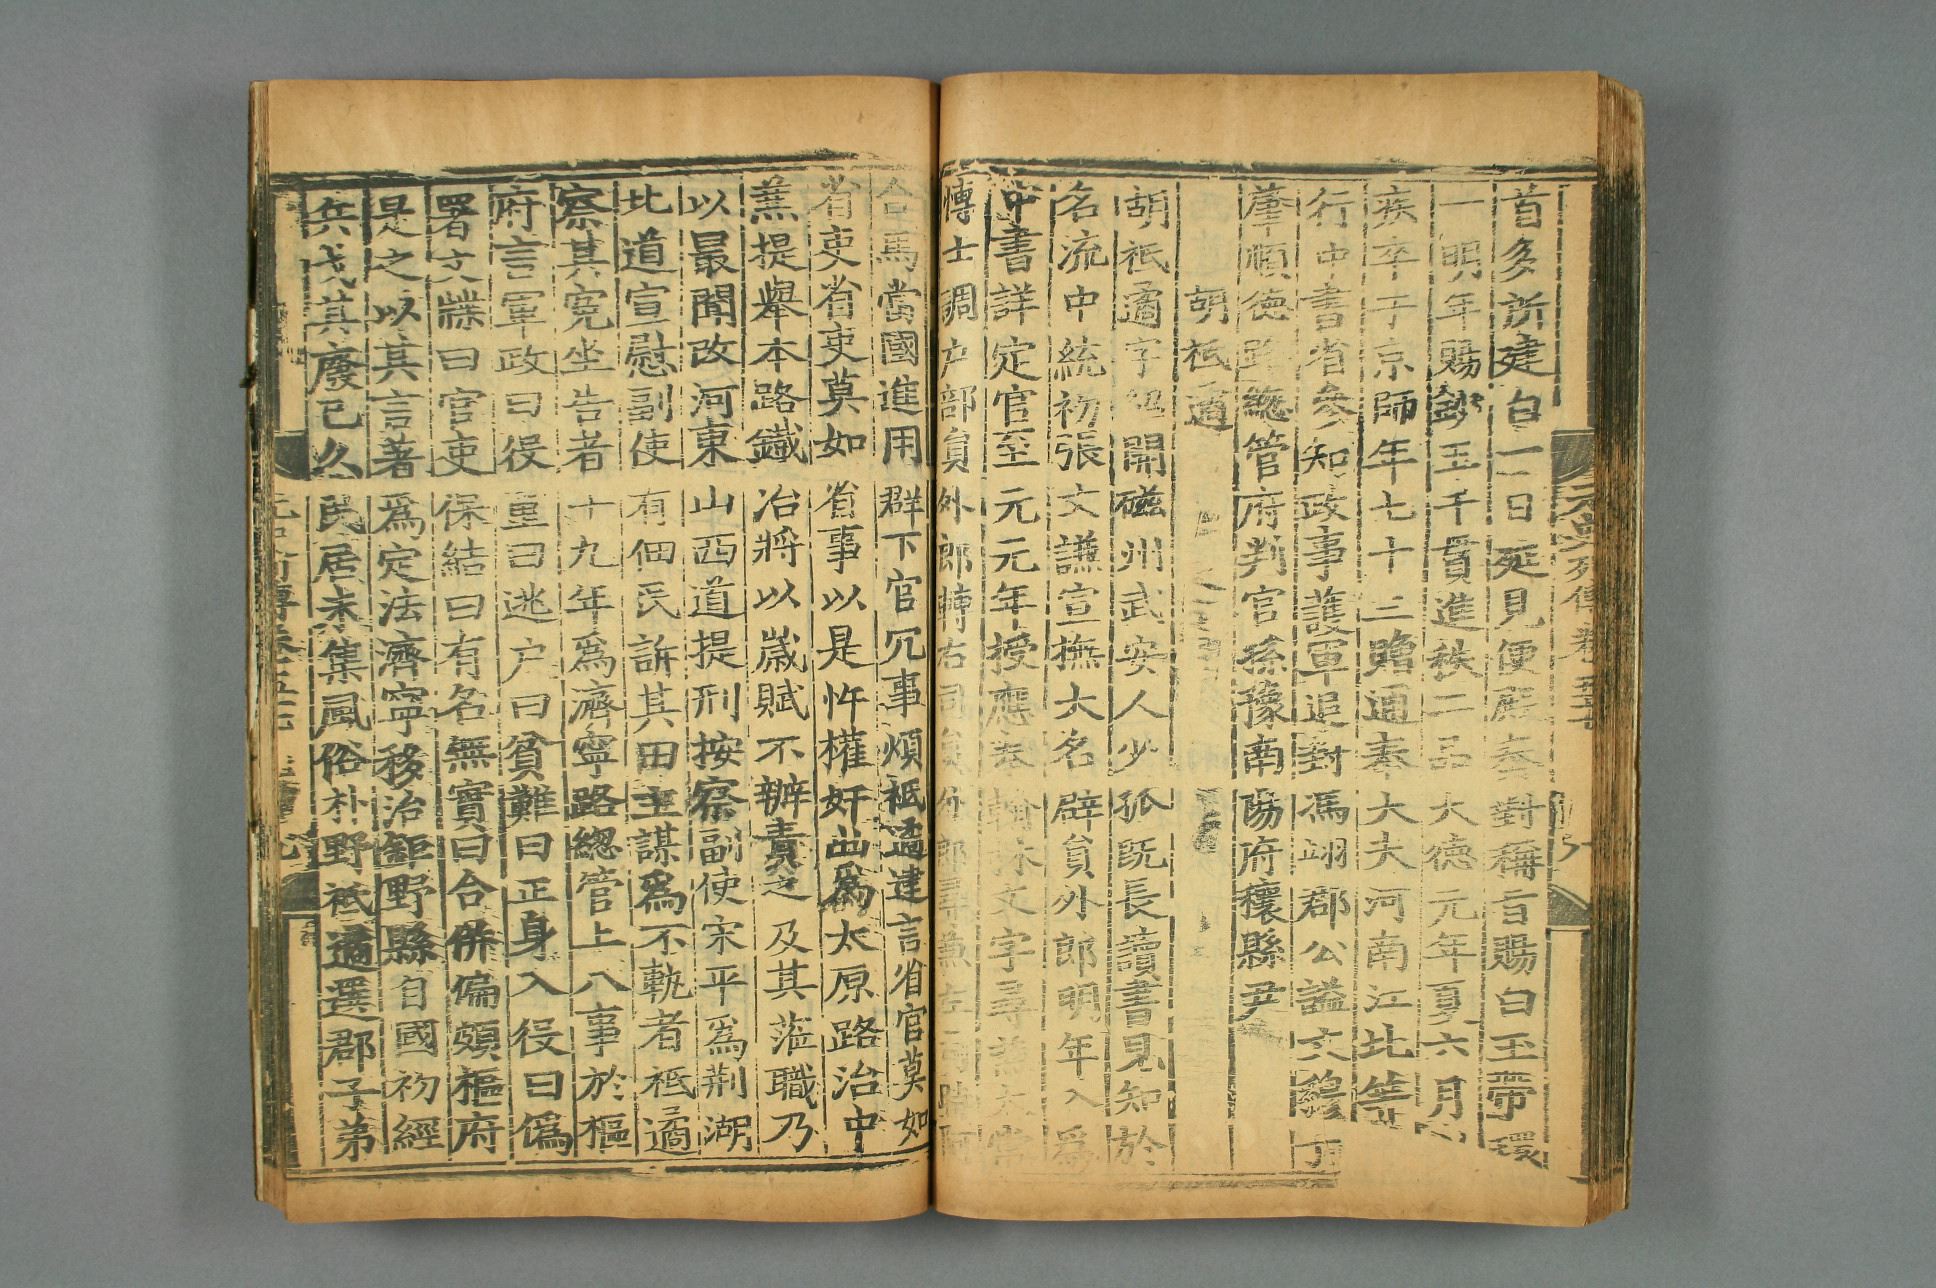 首多所建白一日廷見便殿奏對稱旨賜白玉帶環
一明年賜鈔五千貫進秩二品大德元年夏六月以
疾卒于京師年七十三贈通奉大夫河南江北等
行中書省參知政事護軍追封馮翊郡公謚文懿丁
肇順德路總管府判官孫豫南陽府穰縣尹
胡祗遹
胡祗遹字紹開磁州武安人少孤既長讀書見知於
名流中統初張文謙宣撫大名辟貟外郎明年入爲
中書詳定官至元元年授應奉翰林文字尋兼太常
博士調户部貟外郎轉右司貟外郎尋兼左司時阿
合馬當國進用群下官冗事煩祗遹建言省官莫如
省吏省吏莫如省事以是忤權奸出爲太原路治中
兼提舉本路鐵冶將以歲賦不辦責之及其蒞職乃
以最聞改河東山西道提刑按察副使宋平爲荆湖
北道宣慰副使有佃民訴其田主謀爲不軌者祗遹
察其寃坐告者十九年爲濟寧路總管上八事於樞
府言軍政曰役重曰逃户曰貧難曰正身入役曰僞
署文牒曰官吏保結曰有名無實曰合併偏頗樞府
是之以其言著爲定法濟寧移治鉅野縣自國初經
兵戈其廢已久民居未集風俗朴野祗遹選郡子弟